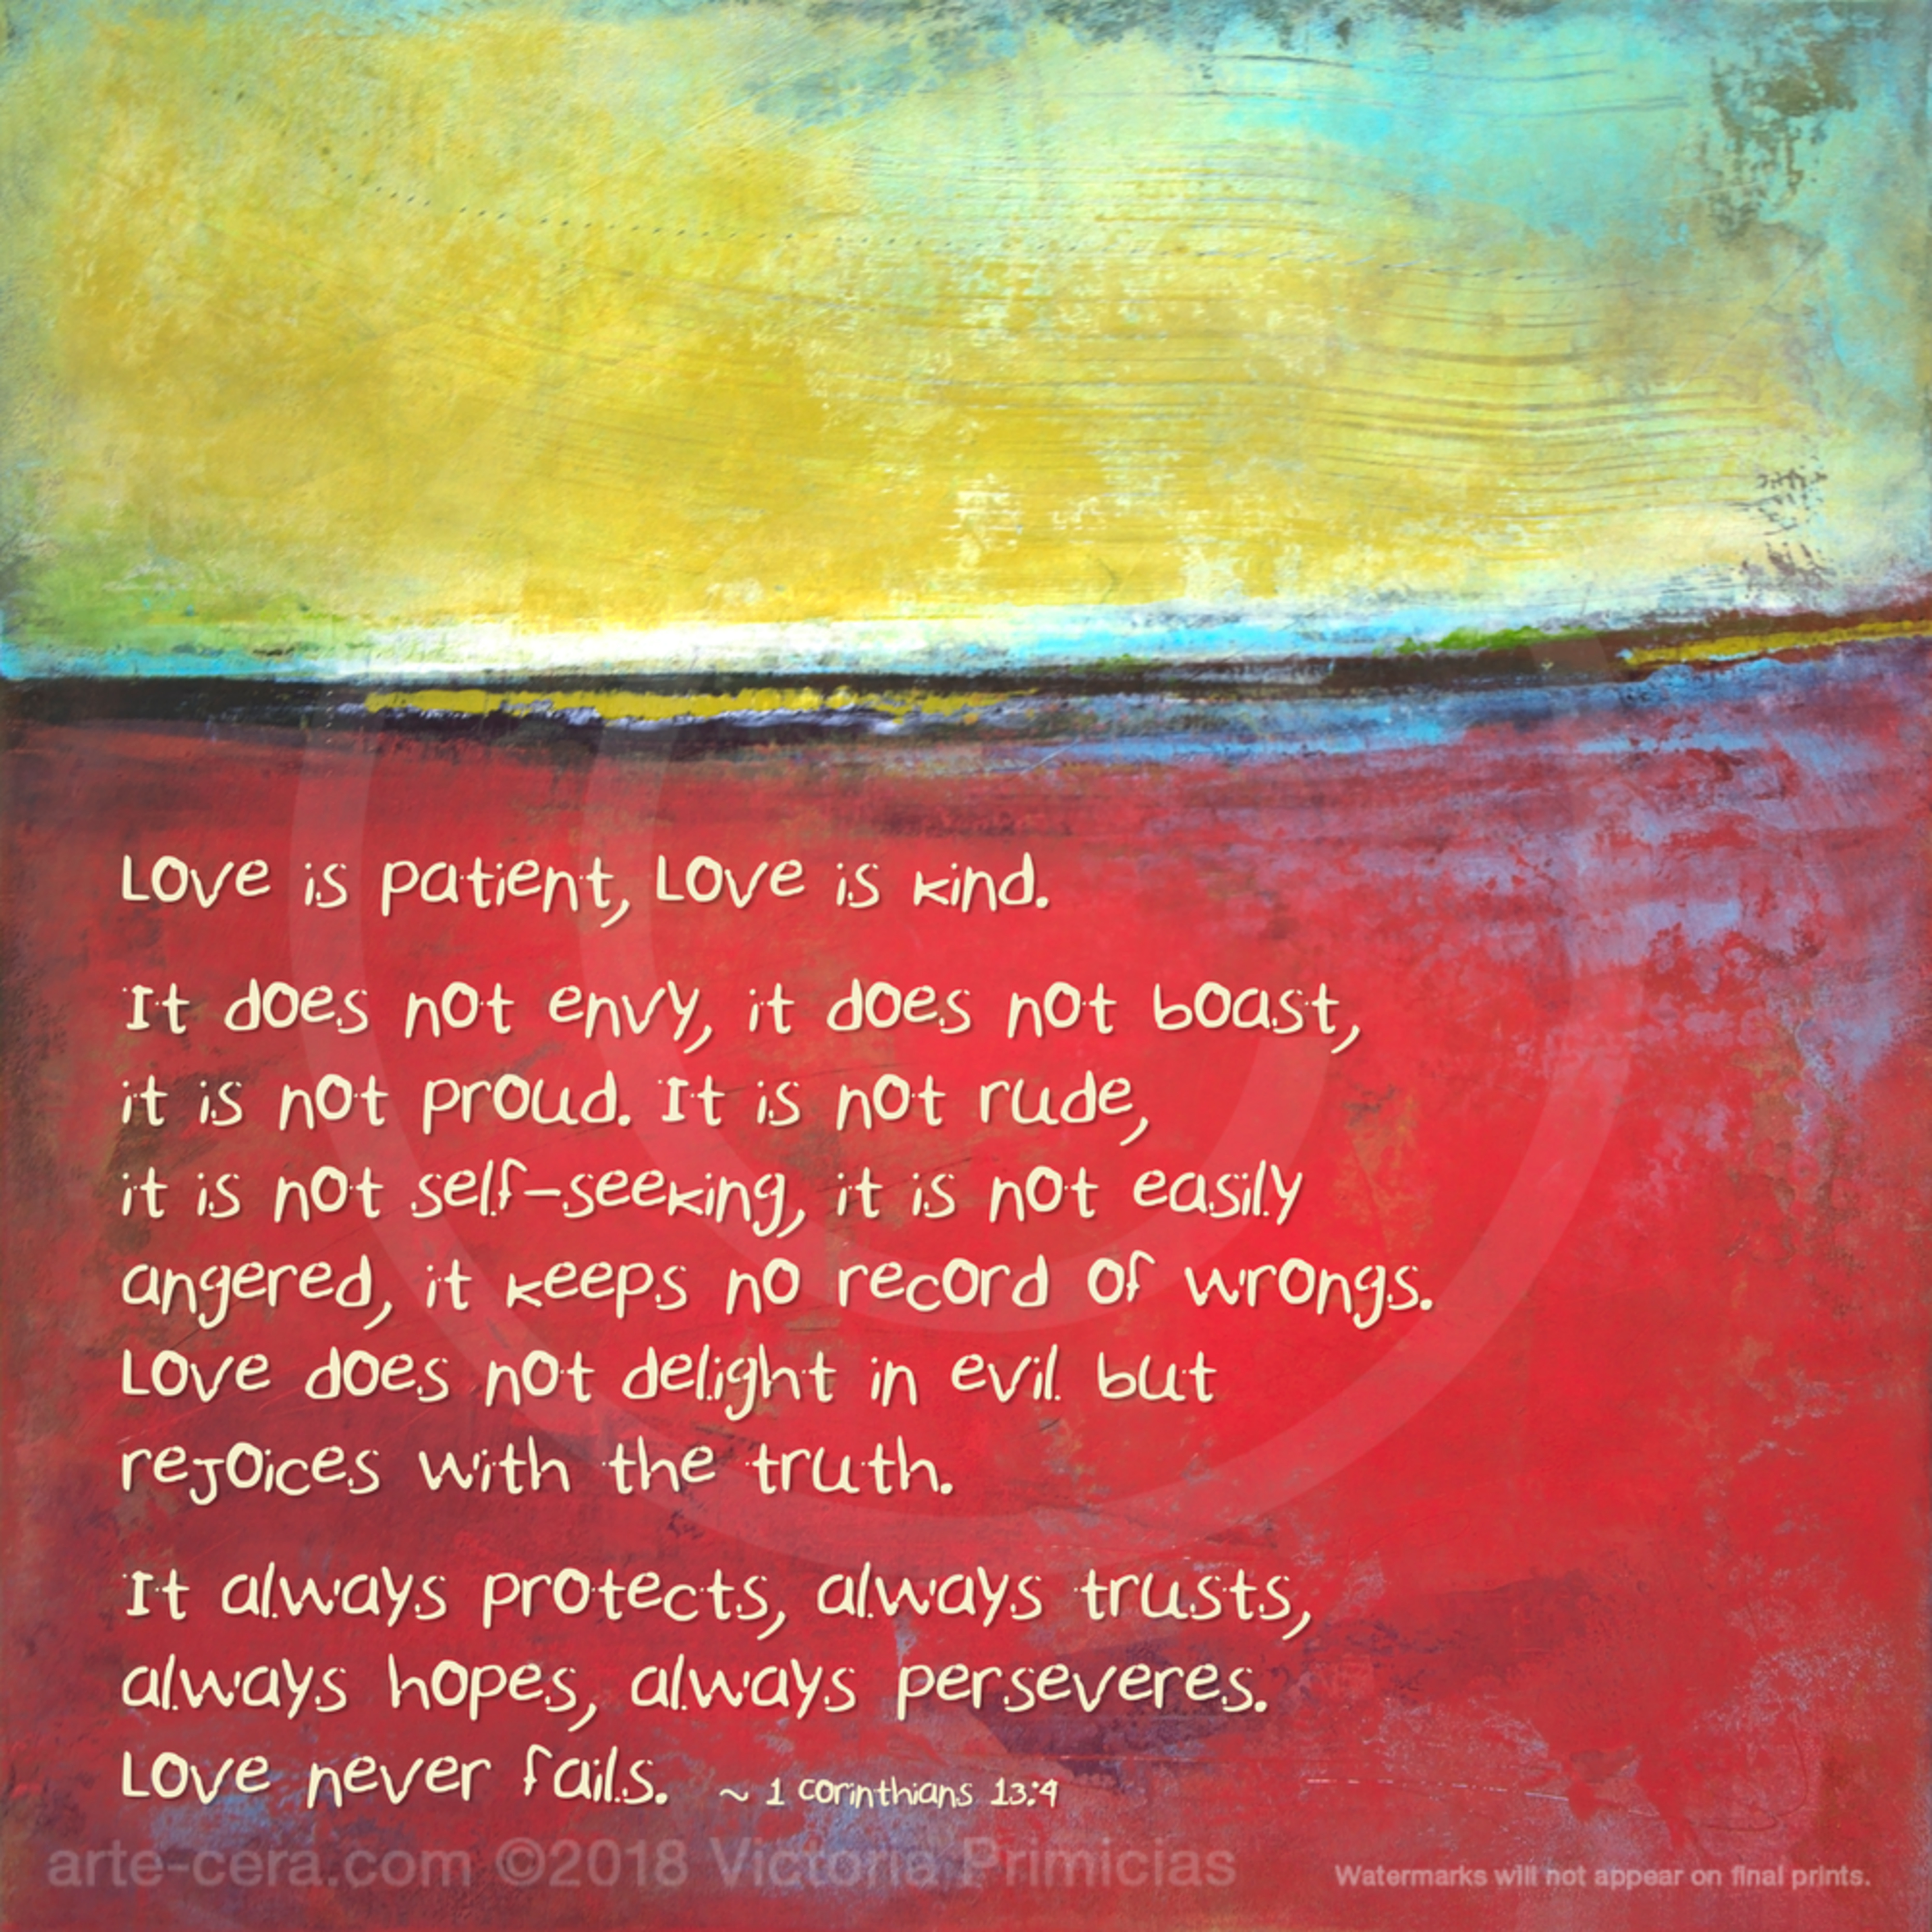 Love is patient, Love is kind.
It does not envy, it does not boast,
it is not proud. It is not rude,
it is not self-seeking, it is not easily
angered, it keeps no record of wrongs.
Love does not delight in evil but
rejoices with the truth.
It always protects, always trusts,
always hopes, always perseveres.
Love never fails. ~ 1 Corinthians 13:4
arte-cera.com ©2018 Victoria Primicias
Watermarks will not appear on final prints.